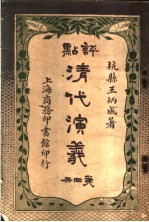 評點
杭縣王炳成著
清代演義
上海商務印書館印行